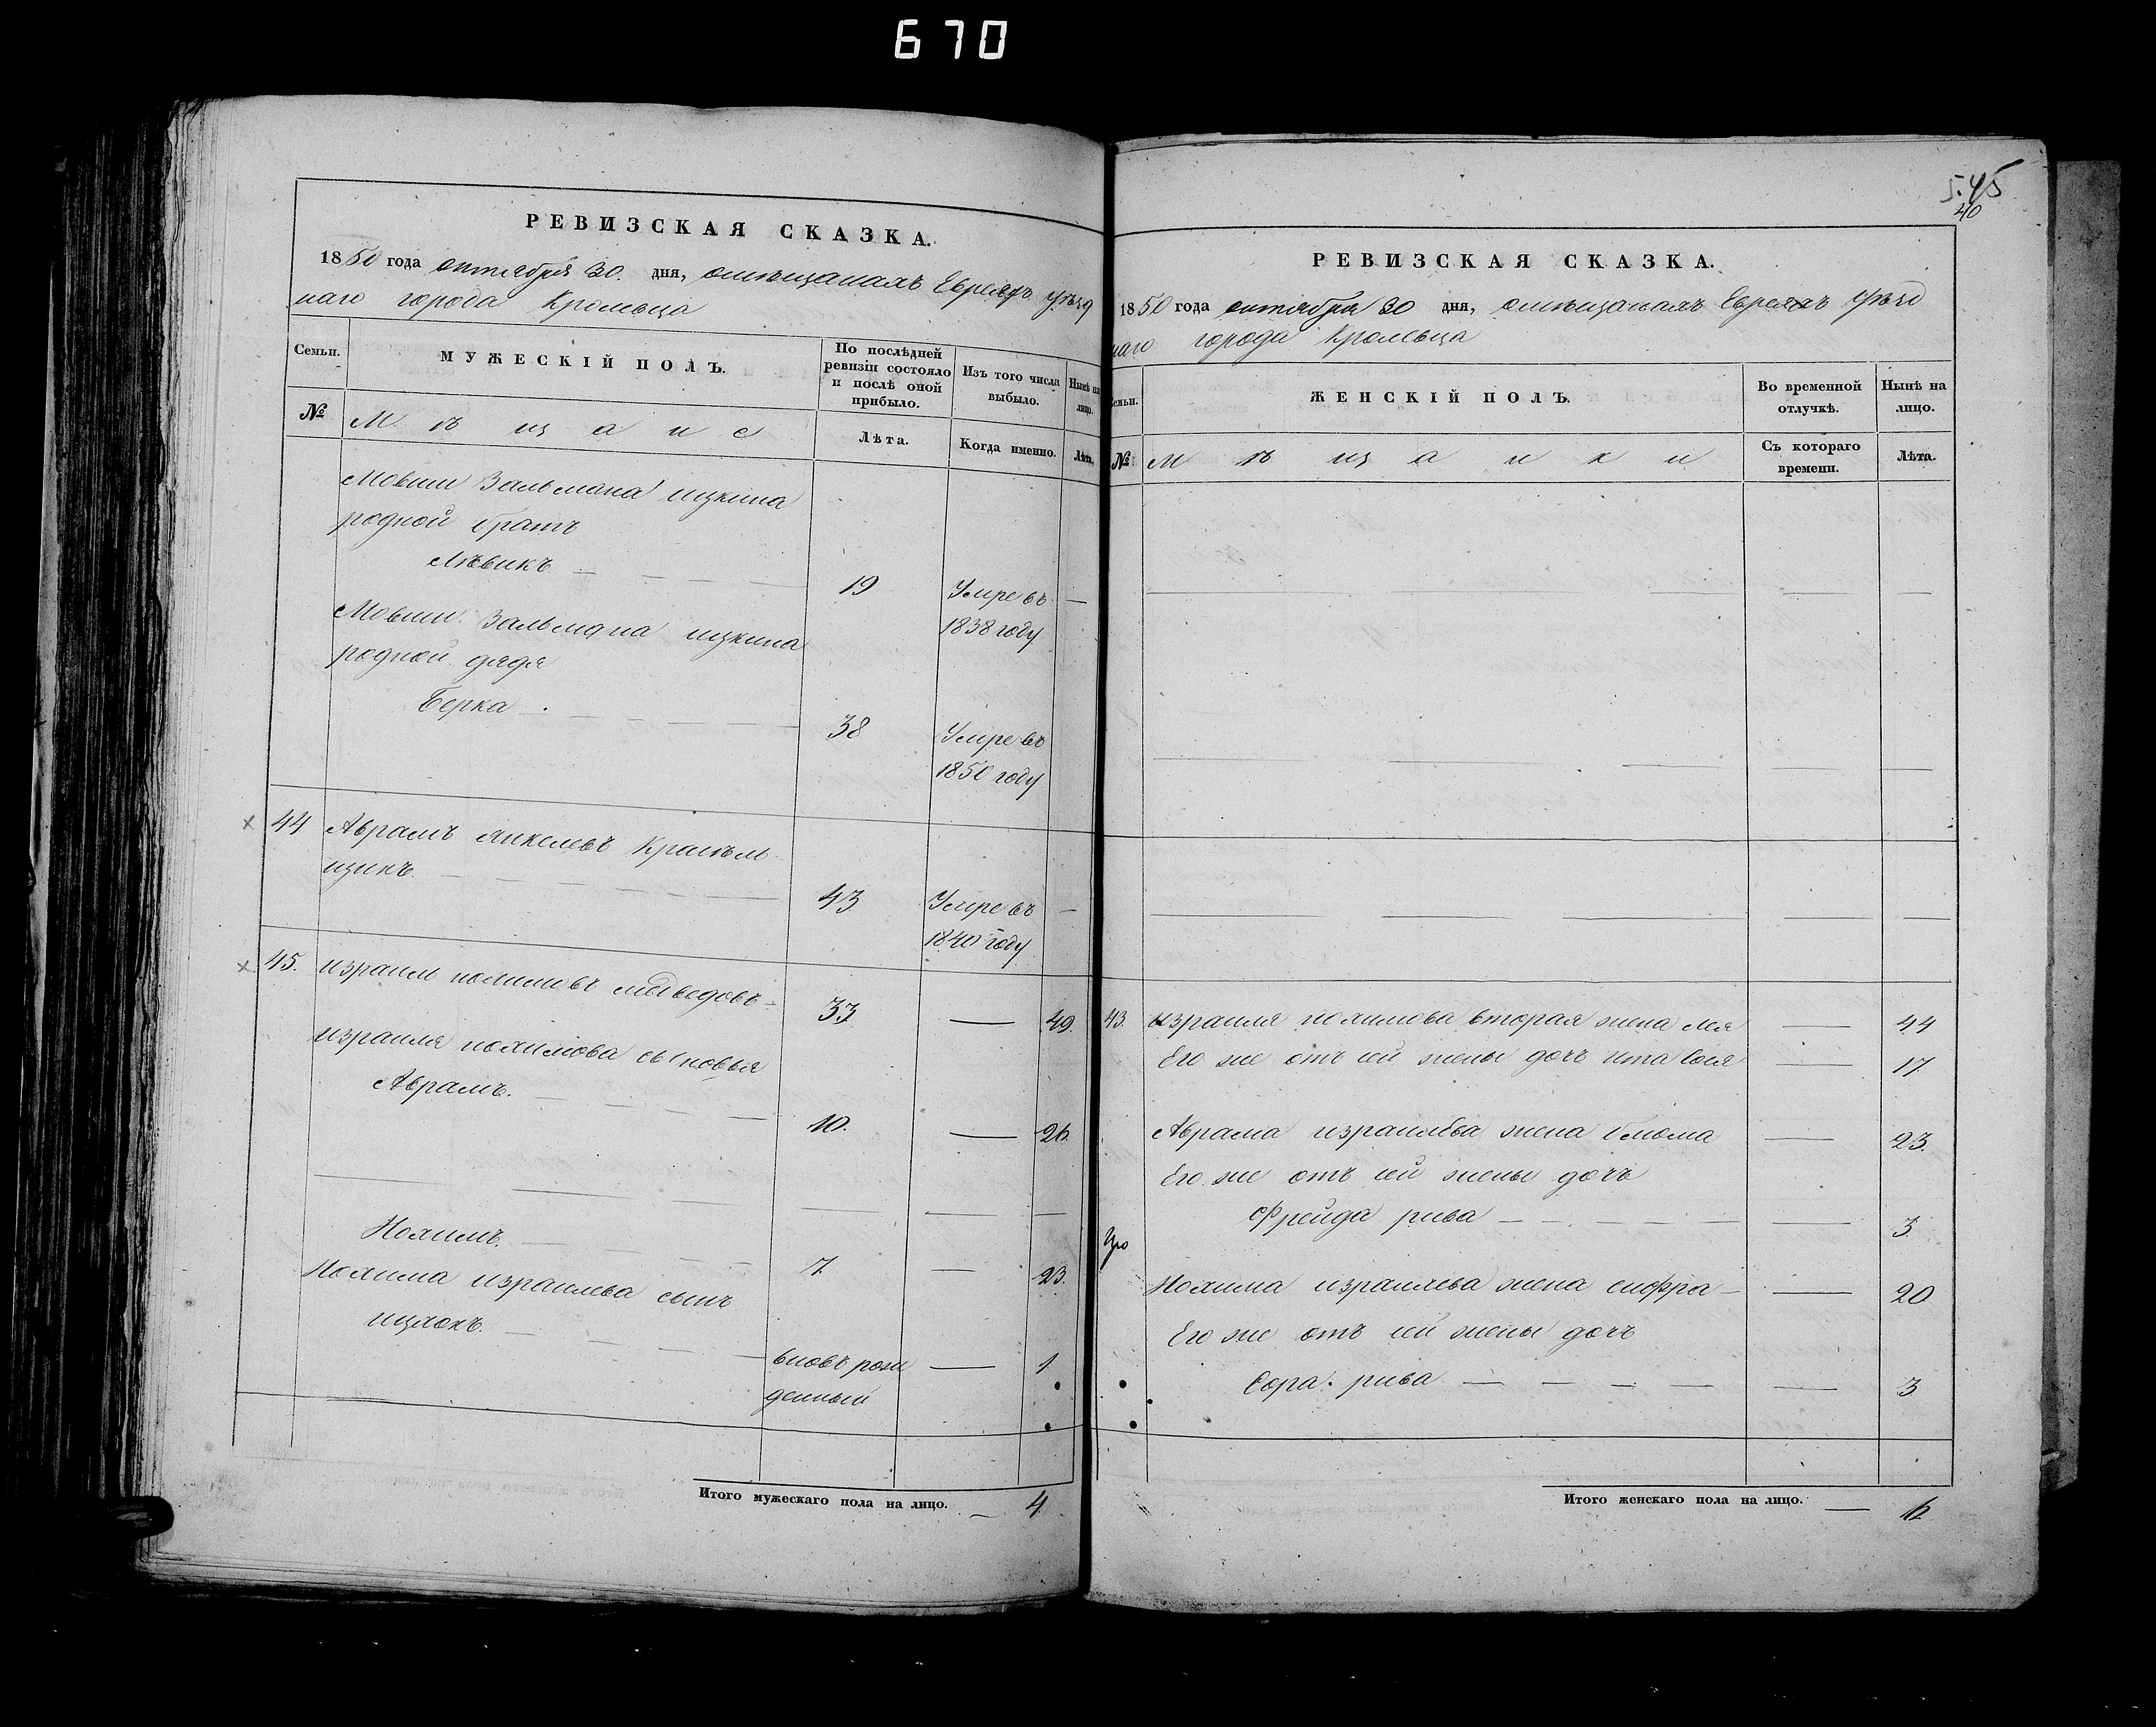 670
РЕВИЗСКАЯ СКАЗКА.
1850 года октября 30. дня, омѣщанахъ Евреяхъ уѣзд
наго города Крольвца
Семьи.
МУЖЕСКІЙ ПОЛЪ.
По послѣдней ревизіи состояло и послѣ оной прибыло.
Изъ того числа выбыло.
Нынѣ на лицо.
№
Мѣщане
Лѣта.
Когда именно.
Лѣта.
Мовши Зальмана ицкина
родной братъ
Лѣвикъ 19 Умре въ —
1838 году
Мовши Зальмана ицкина
родной дядя
Берка 38 Умре въ
1850 году
44 Аврамъ янкелевъ Красѣль
щикъ. 43 Умре въ —
1840 году
45. израиль нохимовъ медведовъ 33 — 49.
израиля нохимова сыновья
Аврамъ. 10. — 26.
Нохимъ. 7. — 23.
Нохима израилева сынъ
ицхокъ. вновь рож — 1
денный
Итого мужескаго пола на лицо. — 4
545
40
РЕВИЗСКАЯ СКАЗКА.
1850 года октября 30 дня, омѣщанахъ Евреяхъ уѣзд
наго города Крольвца
Семьи.
ЖЕНСКІЙ ПОЛЪ.
Во временной отлучкѣ.
Нынѣ на лицо.
№
Мѣщанки
Съ котораго времени.
Лѣта.
43. израиля нохимова вторая жена Лея — 44
Его же отъ ей жены дочъ ита Сося — 17.
Аврама израилева жена блюма — 23.
Его же отъ ей жены дочъ
Фрейда рива — 3.
Нохима израилева жена сифра — 20
Его же отъ ей жены дочъ
Сора рива — 3
Итого женскаго пола на лицо. — 6